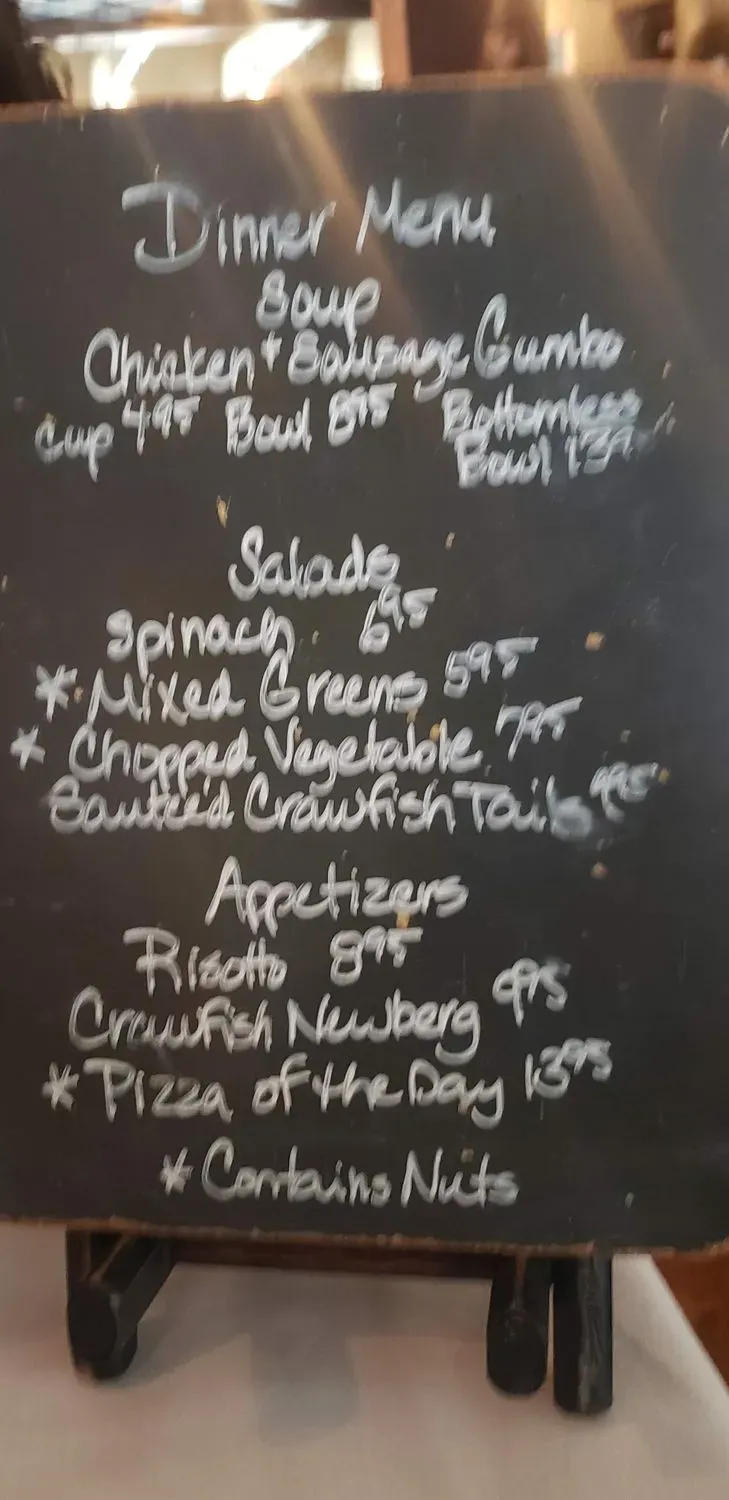 Dinner Menu
Soup
Chicken + Sausage Gumbo
Cup 4.95 Bowl 8.95 Bottomless
Bowl
Salads
Spinach 6.95
* Mixed Greens 5.95
* Chopped Vegetable 7.95
Sauteed Crawfish Tails 9.95
Appetizers
Risotto 8.95
Crawfish Newberg 9.95
* Pizza of the Day 13.95
* Contains Nuts